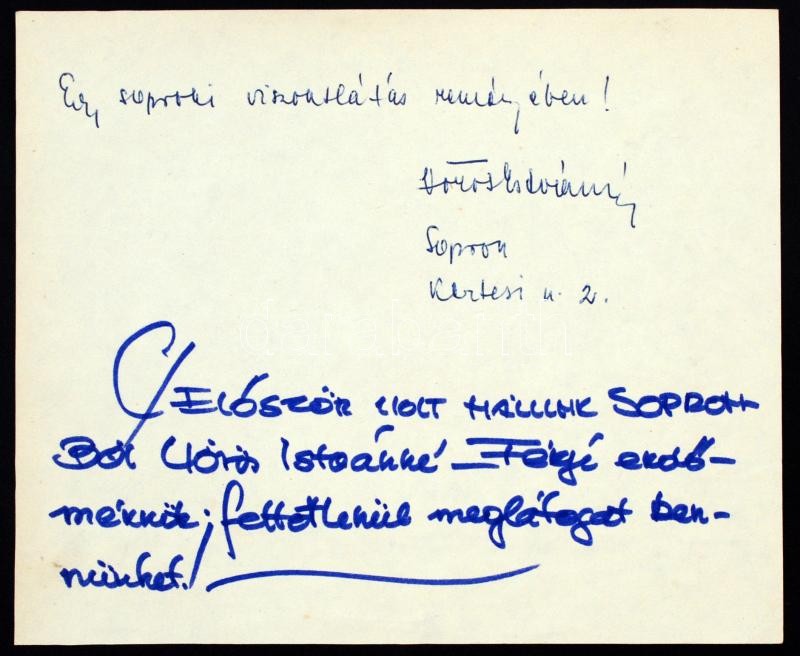 Egy soproni viszontlátás reményében!
Vörös Istvánné
Sopron
Kertesi u. 2.
ELŐSZÖR VOLT NÁLUNK SOPRON-
BÓL Vörös Istvánné Férje erdő-
mérnök; feltétlenül meglátogat ben-
nünket!